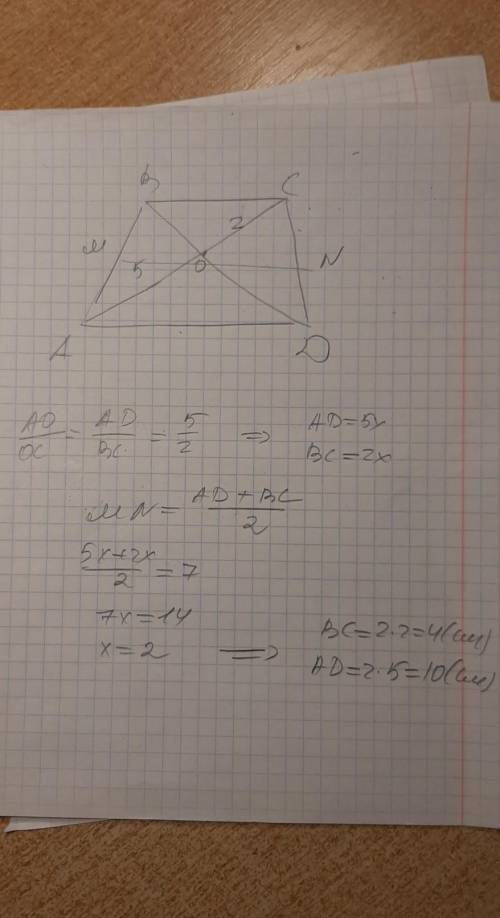 B C
2
M O N
5
A D
AO/OC = AD/BC = 5/2 => AD=5x
BC=2x
MN = (AD+BC)/2
(5x+2x)/2 = 7
7x=14
x=2 => BC=2·2=4(см)
AD=2·5=10(см)